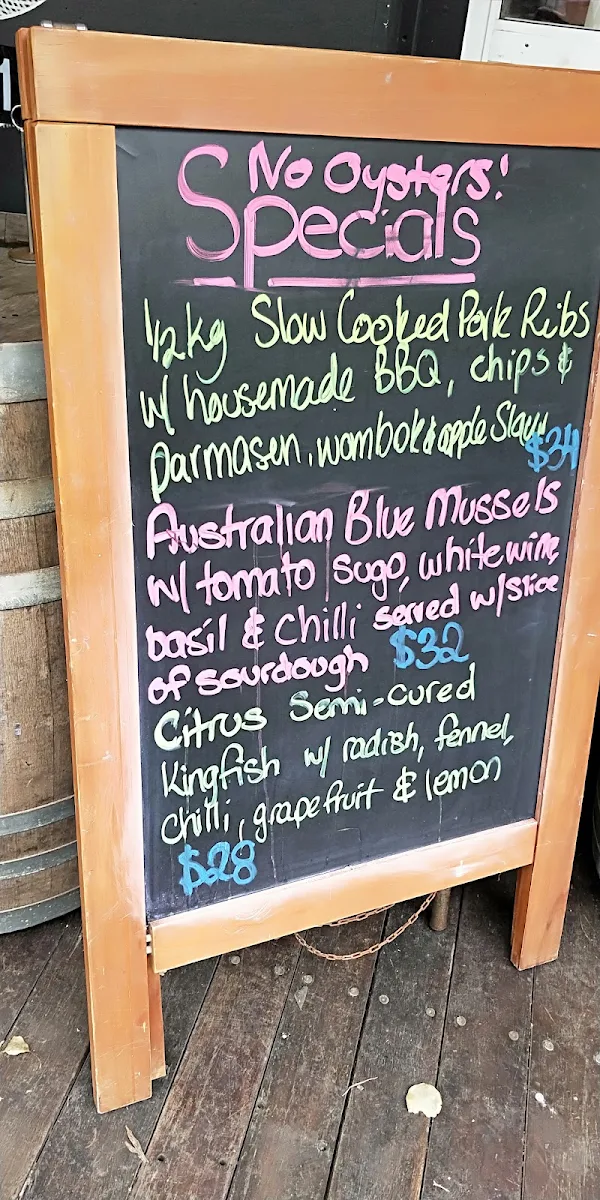 No Oysters!
Specials
1/2kg Slow Cooked Pork Ribs
w/ housemade BBQ, chips &
parmasen, wombok & apple Slaw
$34
Australian Blue Mussels
w/ tomato sugo, white wine,
basil & chilli served w/ slice
of sourdough $32
Citrus Semi-cured
Kingfish w/ radish, fennel,
chilli, grapefruit & lemon
$28